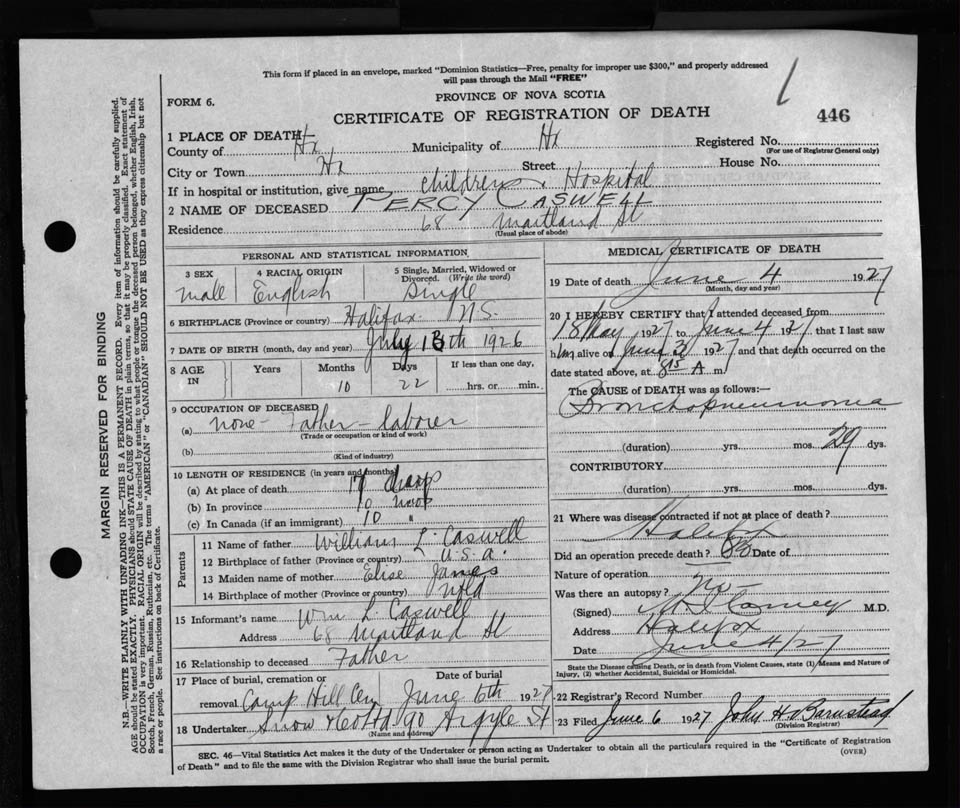 This form if placed in an envelope, marked "Dominion Statistics—Free, penalty for improper use $300," and properly addressed
will pass through the Mail "FREE"
1
FORM 6.
PROVINCE OF NOVA SCOTIA
446
CERTIFICATE OF REGISTRATION OF DEATH
1 PLACE OF DEATH—
County of Hx Municipality of Hx Registered No.
(For use of Registrar General only)
City or Town Hx Street House No.
If in hospital or institution, give name Childrens Hospital
2 NAME OF DECEASED PERCY CASWELL
Residence 68 Maitland St
(Usual place of abode)
PERSONAL AND STATISTICAL INFORMATION
3 SEX 4 RACIAL ORIGIN 5 Single, Married, Widowed or
Divorced. (Write the word)
male English Single
6 BIRTHPLACE (Province or country) Halifax N.S.
7 DATE OF BIRTH (month, day and year) July 13th 1926
8 AGE IN Years Months Days If less than one day,
10 22 hrs. or min.
9 OCCUPATION OF DECEASED
(a) none - Father - laborer
(Trade or occupation or kind of work)
(b)
(Kind of industry)
10 LENGTH OF RESIDENCE (in years and months)
(a) At place of death 17 days
(b) In province 10 mos
(c) In Canada (if an immigrant) 10 "
Parents
11 Name of father William L. Caswell
12 Birthplace of father (Province or country) U.S.A.
13 Maiden name of mother Elise James
14 Birthplace of mother (Province or country) Nfld
15 Informant's name Wm L Caswell
Address 68 Maitland St
16 Relationship to deceased Father
17 Place of burial, cremation or Date of burial
removal Camp Hill Cem June 6th 1927
18 Undertaker Snow & Co Ltd 90 Argyle St
(Name and address)
MEDICAL CERTIFICATE OF DEATH
19 Date of death June 4 1927
(Month, day and year)
20 I HEREBY CERTIFY that I attended deceased from
18 May 1927 to June 4 1927, that I last saw
him alive on June 3 1927 and that death occurred on the
date stated above, at 8 15 A m
The CAUSE of DEATH was as follows:—
Bronchopneumonia
(duration) yrs. mos. 29 dys.
CONTRIBUTORY
(duration) yrs. mos. dys.
21 Where was disease contracted if not at place of death?
Halifax
Did an operation precede death? Date of
Nature of operation
Was there an autopsy? no -
(Signed) M.D.
Address Halifax
Date June 4/27
State the Disease causing Death, or in death from Violent Causes, state (1) Means and Nature of
Injury, (2) whether Accidental, Suicidal or Homicidal.
22 Registrar's Record Number
23 Filed June 6 1927 John H Barnstead
(Division Registrar)
SEC. 46—Vital Statistics Act makes it the duty of the Undertaker or person acting as Undertaker to obtain all the particulars required in the "Certificate of Registration
of Death" and to file the same with the Division Registrar who shall issue the burial permit.
(OVER)
MARGIN RESERVED FOR BINDING
N.B.—WRITE PLAINLY WITH UNFADING INK—THIS IS A PERMANENT RECORD. Every item of information should be carefully supplied.
AGE should be stated EXACTLY. PHYSICIANS should STATE CAUSE OF DEATH in plain terms, so that it may be properly classified. Exact statement of
OCCUPATION is very important. RACIAL ORIGIN will be described by stating to what people or tongue the deceased person belonged, whether English, Irish,
Scotch, French, German, Russian, Ruthenian, etc. The terms "AMERICAN" or "CANADIAN" SHOULD NOT BE USED as they express citizenship but not
a race or people. See instructions on back of Certificate.